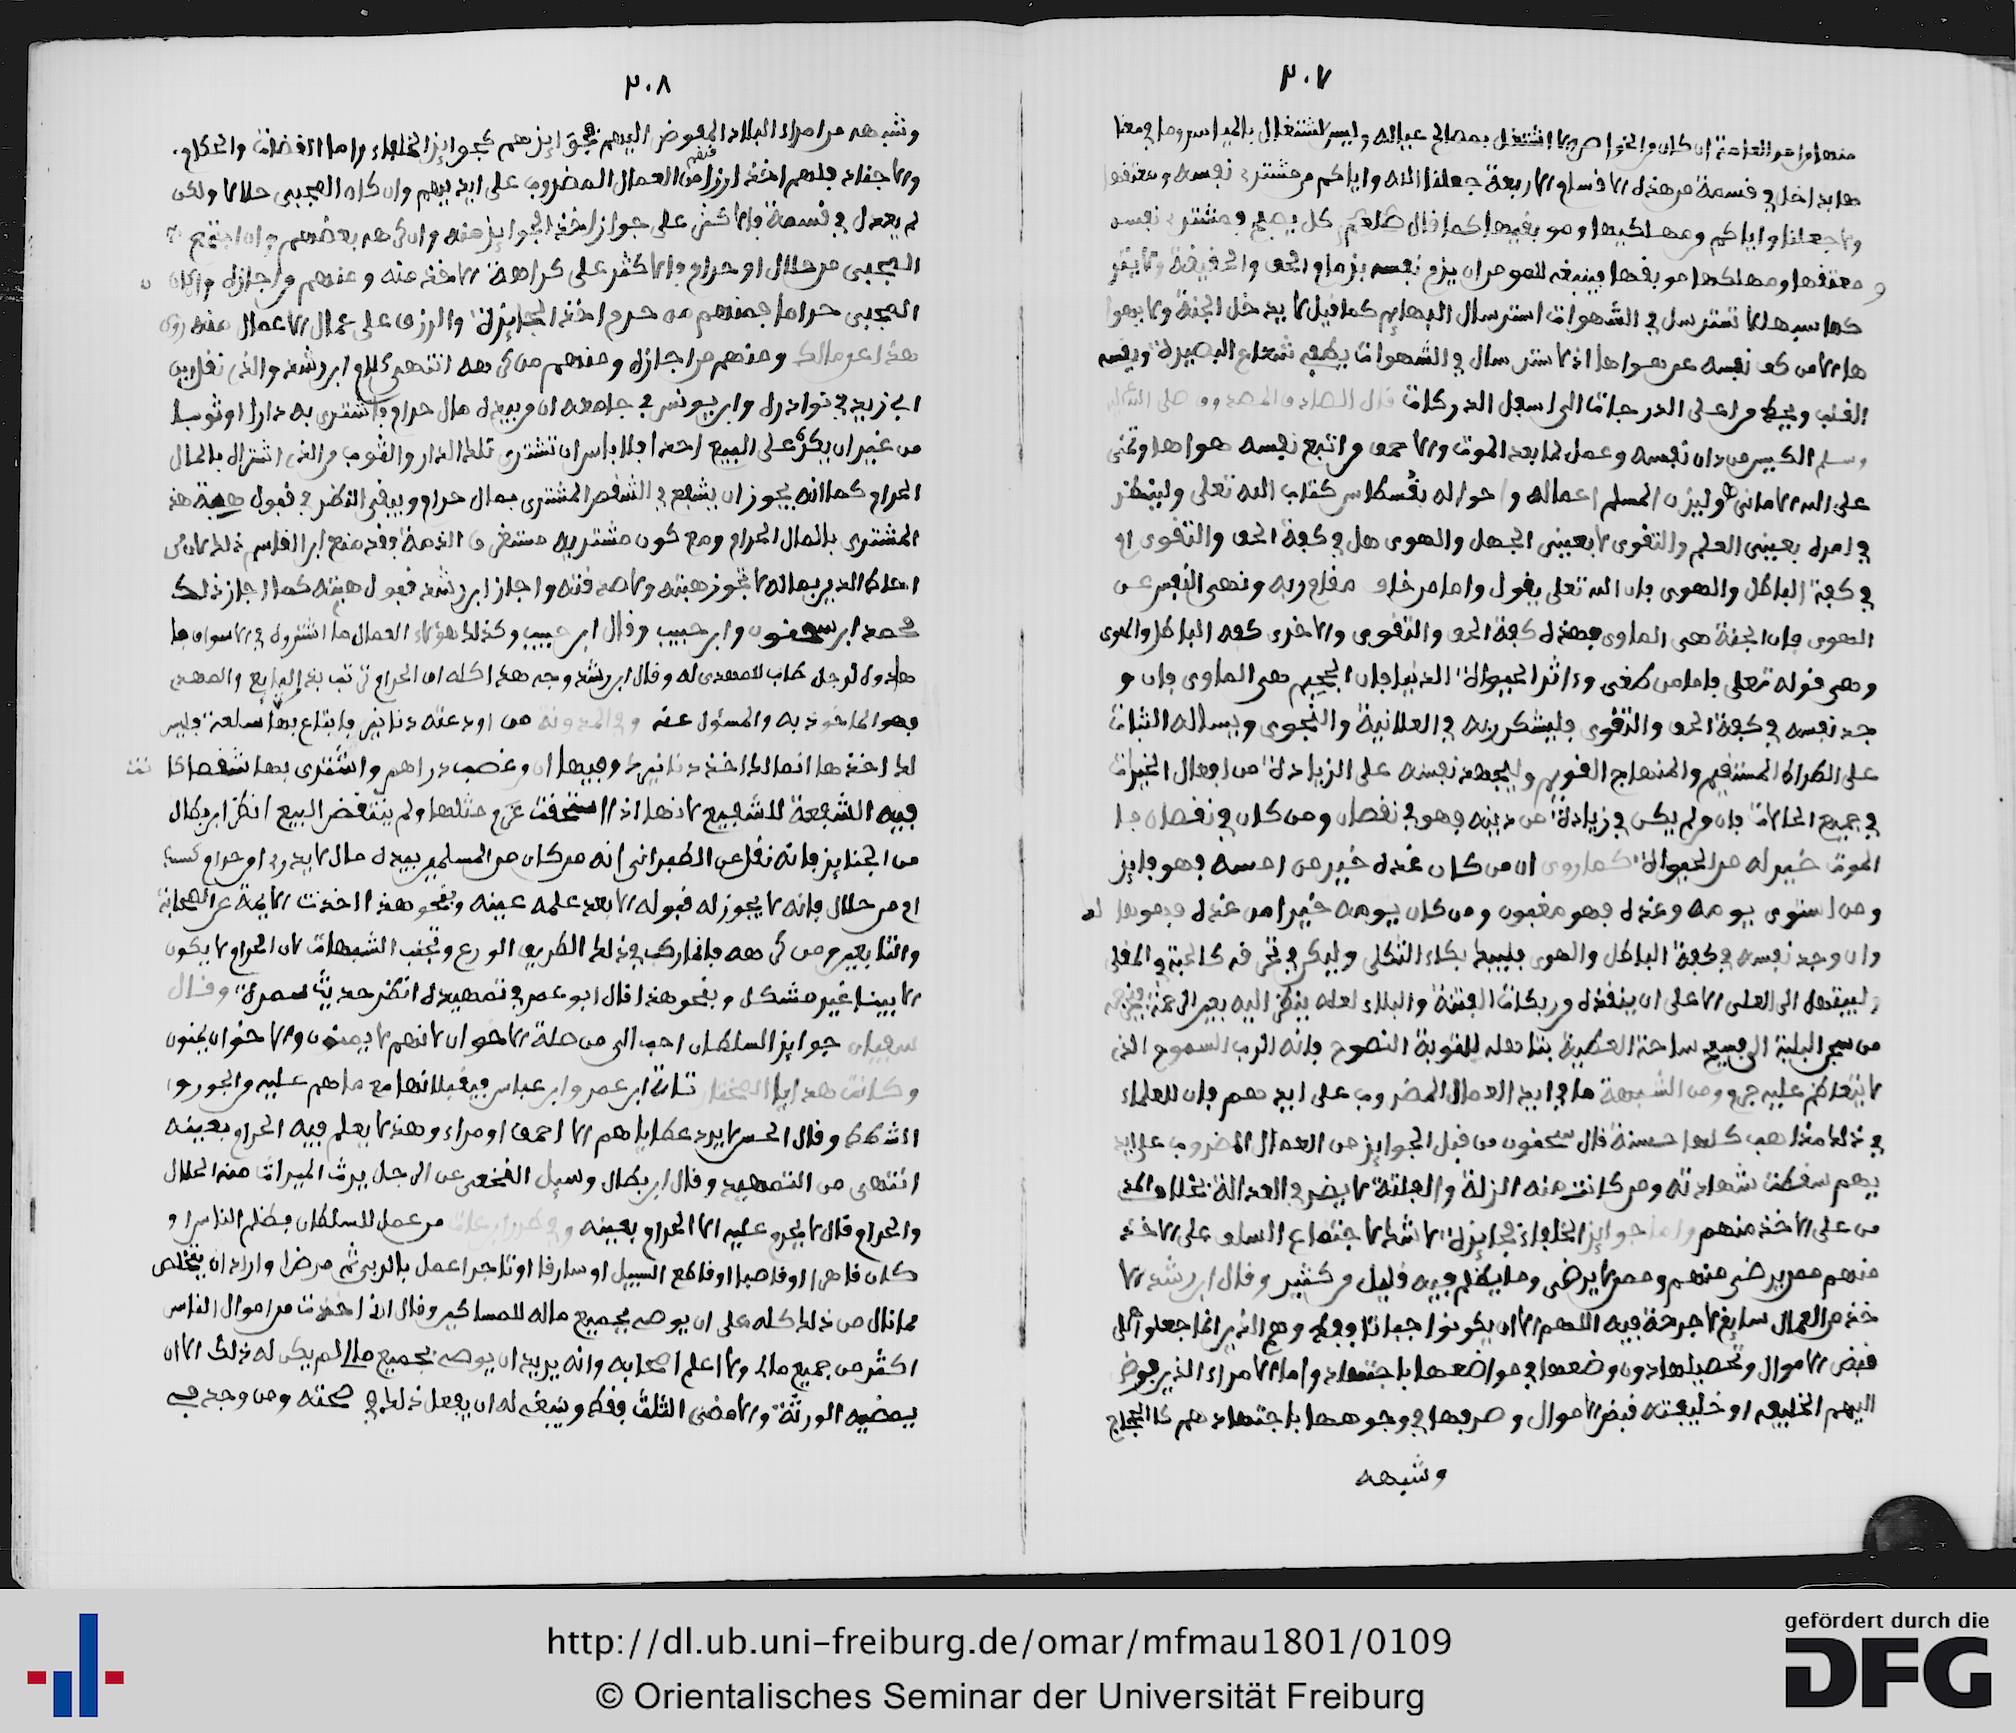 ٢٠٧
منها وامر العامة ان كان من الخواص ولا اشتغل بمصالح عياله وليس الاشتغال بالميراس وما في معنا
ها بداخل في قسمة من هذه الاقسام الاربعة جعلنا الله واياكم من مشتري نفسه ومعتقها
ولا جعلنا واياكم ومهلكيها وموبقيها كما قال صلعم كل يصبح ومشتر نفسه
و معتقها ومهلكها موبقها فينبغي للمومن ان يزم نفسه بزمام الحق والحقيقة ولا يتر
كها سبهللا تسترسل في الشهوات استرسال البهايم كما قيل لا يدخل الجنة ولا يهوا
ها الا من كف نفسه عن هواها اذ الاسترسال في الشهوات يطفي شعاع البصيرة ويقسه
القلب ويحط من اعلى الدرجات الى اسفل الدركات قال الصادق المصدوق صلى الله عليه
وسلم الكيس من دان نفسه وعمل لما بعد الموت والاحمق من اتبع نفسه هواها وتمنى
على الله الامانى وليزن المسلم اعماله واحواله بقسطاس كتاب الله تعلى ولينظر
في امره بعيني العلم والتقوى لا بعيني الجهل والهوى هل في كفة الحق والتقوى ام
في كفة الباطل والهوى فان الله تعلى يقول واما من خاف مقام ربه ونهى النفس عن
الهوى فان الجنة هي الماوى فهذه كفة الحق والتقوى والاخرى كفة الباطل والهوى
وهي قوله تعلى فاما من طغى وءاثر الحيوة الدنيا فان الجحيم هي الماوى فان و
جد نفسه في كفة الحق والتقوى فليشكر ربه في العلانية والنجوى ويساله الثبات
على الطراط المستقيم والمنهاج القويم وليجهد نفسه على الزيادة من افعال الخيرات
في جميع الحالات فان ولم يكن في زيادة من دينه فهو في نقصان ومن كان في نقصان فا
الموت خير له من الحيوة كما روى ان من كان غده خير من امسه فهو فايز
ومن استوى يومه وغده فهو مغبون ومن كان يومه خيرا من غده فهو
وان وجد نفسه في كفة الباطل والهوى فليبك بكاء الثكلى وليكن في تحرقه كالحبة في المقلى
من سجن البلية الى فسيح ساحة العطية بتاهله للتوبة النصوح فانه الرب السموح الذي
لا يتعاظم عليه جرم ومن الشبهة ما في ايد العمال المضروب على ايد هم فان للعلماء
في ذلك مذاهب كلها حسنة قال سحنون من قبل الجوايز من العمال المضروب على ايد
يهم سقطت شهادته ومن كانت منه الزلة والفلتة لا يضر في العدالة بخلاف المد
من على الاخذ منهم واما جوايز الخلفاء فجايزة لا شك لاجتماع السلف على الاخذ
منهم ممن يرضى منهم وممن لا يرضى وما يظلم فيه قليل من كثير وقال ابن رشد الا
خذ من العمال سايغ لا جرحة فيه اللهم الا ان يكونوا جباتا فقط وهم الذين انما جعلوا على
قبض الاموال وتحصيلها دون وضعها في مواضعها باجتهاد واما الامراء الذين فوض
اليهم الخليفة او خليفته قبض الاموال وصرفها في وجوهها باجتهادهم كا الحجاج
وشبهه
٢٠٨
وشبهه من امراء البلاد المفوض اليهم فجوايزهم كجوايز الخلفاء واما القضات والحكام
والاجناد فلهم اخذ ارزاقهم من العمال المضروب على ايديهم وان كان المجبى حلالا ولكن
لم يعدل في قسمه فالاكثر على جواز اخذ الجوايز منه وان كرهه بعضهم وان اجتمع
المجبى من حلال او حرام فالاكثر على كراهة الاخذ منه ومنهم من اجازه وان كان
المجبى حراما فمنهم من حرم اخذ الجايزة والرزق على عمال الاعمال منه روى
هذا عن مالك ومنهم من اجازه ومنهم من كرهه انتهى كلام ابن رشد والذي نقل ابن
ابي زيد في نوادره وابن يونس في جامعه ان من بيده مال حرام فاشترى به دارا او ثوبا
من غير ان يكره على البيع احدا فلا باس ان تشترى تلك الدار والثوب من الذي اشتراه بالمال
الحرام كما انه يجوز ان يشفع في الشقص المشترى بمال حرام ويبقى النظر في قبول هبة هذا
المشترى بالمال الحرام ومع كون مشتريه مستغرق الذمة فقد منع ابن القاسم ذلك
احاط الدين بماله لا تجوز هبته ولا صدقته واجاز ابن رشد قبول هبته كما اجاز ذلك
محمد ابن سحنون وابن حبيب وقال ابن حبيب وكذلك هؤلاء العمال ما اشتروه في الاسواق فا
هدوه لرجل طاب للمهدى له وقال ابن رشد وجه هذا كله ان الحرام ترتب بذا البايع والمهد
فهو الماخوذ به والمسئول عنه وفي المدونة من اودعته دنانير فابتاع بها سلعة فليس
لك اخذها انما لك اخذ دنانيرك وفيها ان من غصب دراهم واشترى بها شقصا كا نت
فيه الشفعة للشفيع لانها اذا استحقت غرم مثلها ولم ينتقض البيع انظر ابن بطال
من الجنايز فانه نقل عن الطبراني انه من كان من المسلمين بيده مال لا يدري امن حرام كسبه
ام من حلال فانه لا يجوز له قبوله الا بعد علمه عينه وبنحو هذا اخذت الايمة عن الصحابة
والتابعين ومن كرهه فانما ركب في ذلك الطريق الورع وتجنب الشبهات لان الحرام لا يكون
الا بينا غير مشكل وبنحو هذا قال ابو عمر في تمهيده انظر حديث سمرة وقال
سفيان جوايز السلطان احب الى من صلة الاخوان لانهم لا يمنون والاخوان يمنون
وكانت هدايا المختار تاتي ابن عمر وابن عباس فيقبلانها مع ما هم عليه من الجور وا
الشطط وقال الحسن لا يرد عطاياهم الا احمق او مراء وهذا لا يعلم فيه الحرام بعينه
انتهى من التمهيد وقال ابن بطال وسيل النخعي عن الرجل يرث الميراث منه الحلال
والحرام قال لا يحرم عليه الا الحرام بعينه من عمل للسلطان فظلم الناس او
كان قاهرا او غاصبا او قاطع السبيل او سارقا او تاجرا عمل بالربى ثم مرض واراد ان يتخلص
مما نال من ذلك كله على ان يوصى بجميع ماله للمساكين وقال اذا اخذت من اموال الناس
اكثر من جميع مالى ولا اعلم اصحابه وانه يريد ان يوصى بجميع ماله لم يكن له ذلك الا ان
يمضيه الورثة والا مضى الثلث فقط وينبغى له ان يفعل ذلك في صحته ومن وجد في
http://dl.ub.uni-freiburg.de/omar/mfmau1801/0109
© Orientalisches Seminar der Universität Freiburg
gefördert durch die
DFG